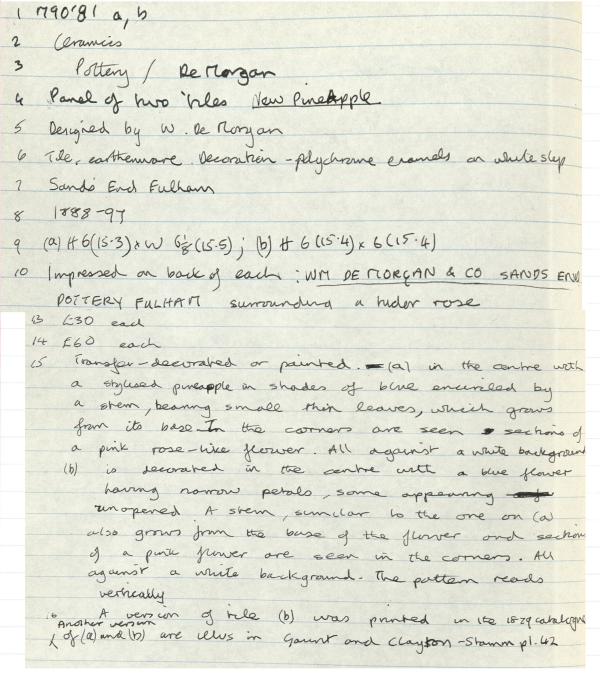 1 790'81 a, b
2 Ceramics
3 Pottery / De Morgan
4 Panel of two tiles New Pineapple
5 Designed by W. De Morgan
6 Tile, earthenware. Decoration - polychrome enamels on white slip
7 Sands End Fulham
8 1888-97
9 (a) H 6(15.3) x W 6⅛(15.5); (b) H 6(15.4) x 6(15.4)
10 Impressed on back of each : WM DE MORGAN & CO SANDS END
POTTERY FULHAM surrounding a tudor rose
13 £30 each
14 £60 each
15 Transfer-decorated or painted. (a) in the centre with
a stylised pineapple in shades of blue encircled by
a stem, bearing small thin leaves, which grows
from its base. In the corners are seen sections of
a pink rose-like flower. All against a white background
(b) is decorated in the centre with a blue flower
having narrow petals, some appearing
unopened A stem, similar to the one on (a)
also grows from the base of the flower and sections
of a pink flower are seen in the corners. All
against a white background. The pattern reads
vertically
16 A version of tile (b) was printed in the catalogue
Another version
of (a) and (b) are illus in Gaunt and Clayton-Stamm pl. 42